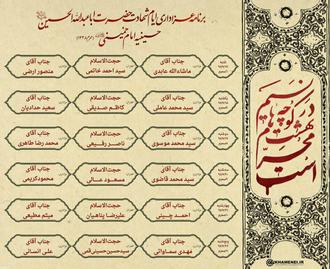 برنامه عزاداری ایام شهادت حضرت اباعبدالله الحسین
حسینیه امام خمینی
نسیم
در کوچه‌های
بهشت
محرم
است
جناب آقای
ماشاءالله عابدی
حجت‌الاسلام
سید احمد خاتمی
جناب آقای
منصور ارضی
جناب آقای
سید محمد عاملی
حجت‌الاسلام
کاظم صدیقی
جناب آقای
سعید حدادیان
جناب آقای
سید محمد موسوی
حجت‌الاسلام
ناصر رفیعی
جناب آقای
محمد رضا طاهری
جناب آقای
سید محمد قاضوی
حجت‌الاسلام
مسعود عالی
جناب آقای
محمود کریمی
جناب آقای
احمد چینی
حجت‌الاسلام
علیرضا پناهیان
جناب آقای
میثم مطیعی
جناب آقای
مهدی سماواتی
حجت‌الاسلام
سید حسین حسینی قمی
جناب آقای
علی انسانی
KHAMENEI.IR